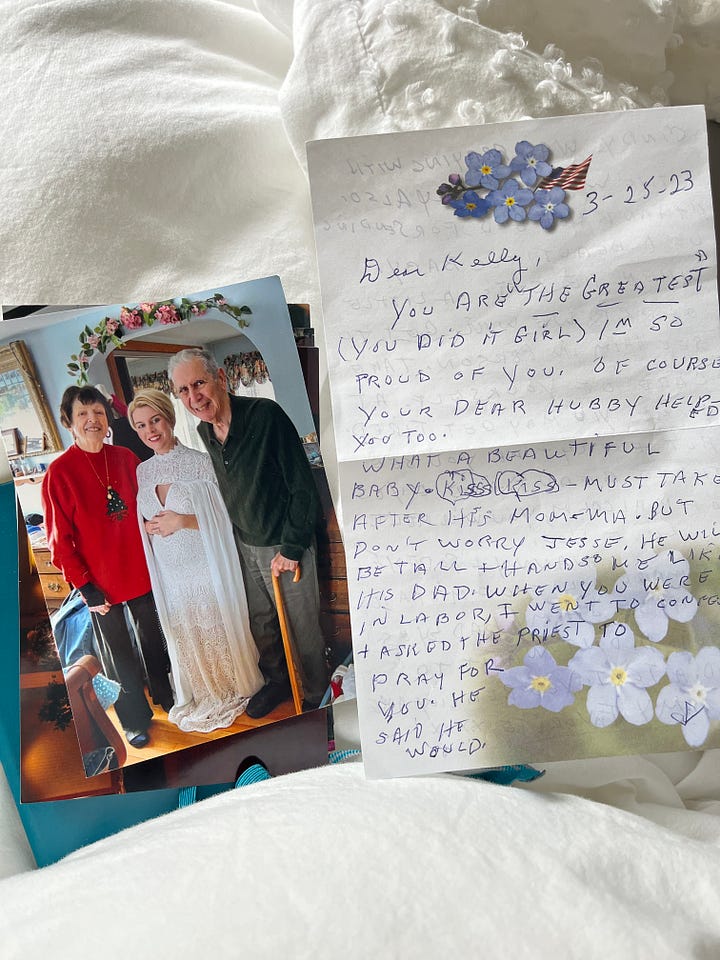 3-25-23
Dear Kelly,
YOU ARE THE GREATEST
(YOU DID IT GIRL) I'M SO
PROUD OF YOU. OF COURSE
YOUR DEAR HUBBY HELPED
YOU TOO.
WHAT A BEAUTIFUL
BABY. KISS KISS - MUST TAKE
AFTER HIS MOM-MA. BUT
DON'T WORRY JESSE, HE WILL
BE TALL + HANDSOME LIKE
HIS DAD. WHEN YOU WERE
IN LABOR, I WENT TO
+ ASKED THE PRIEST TO
PRAY FOR
YOU. HE
SAID HE
WOULD.